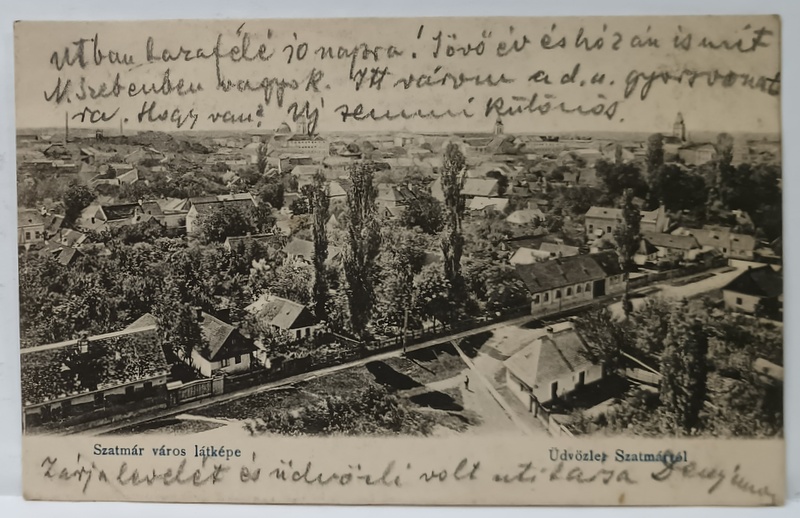 Utban hazafelé 10 napra! Jövő év és hózán ismét
N. Szebenben vagyok. Itt várom a d. u. gyorsvonat
ra. Hogy van? Uj semmi különös.
Szatmár város látképe
Üdvözlet Szatmárról
Zárja levelét és üdvözli volt utitarsa